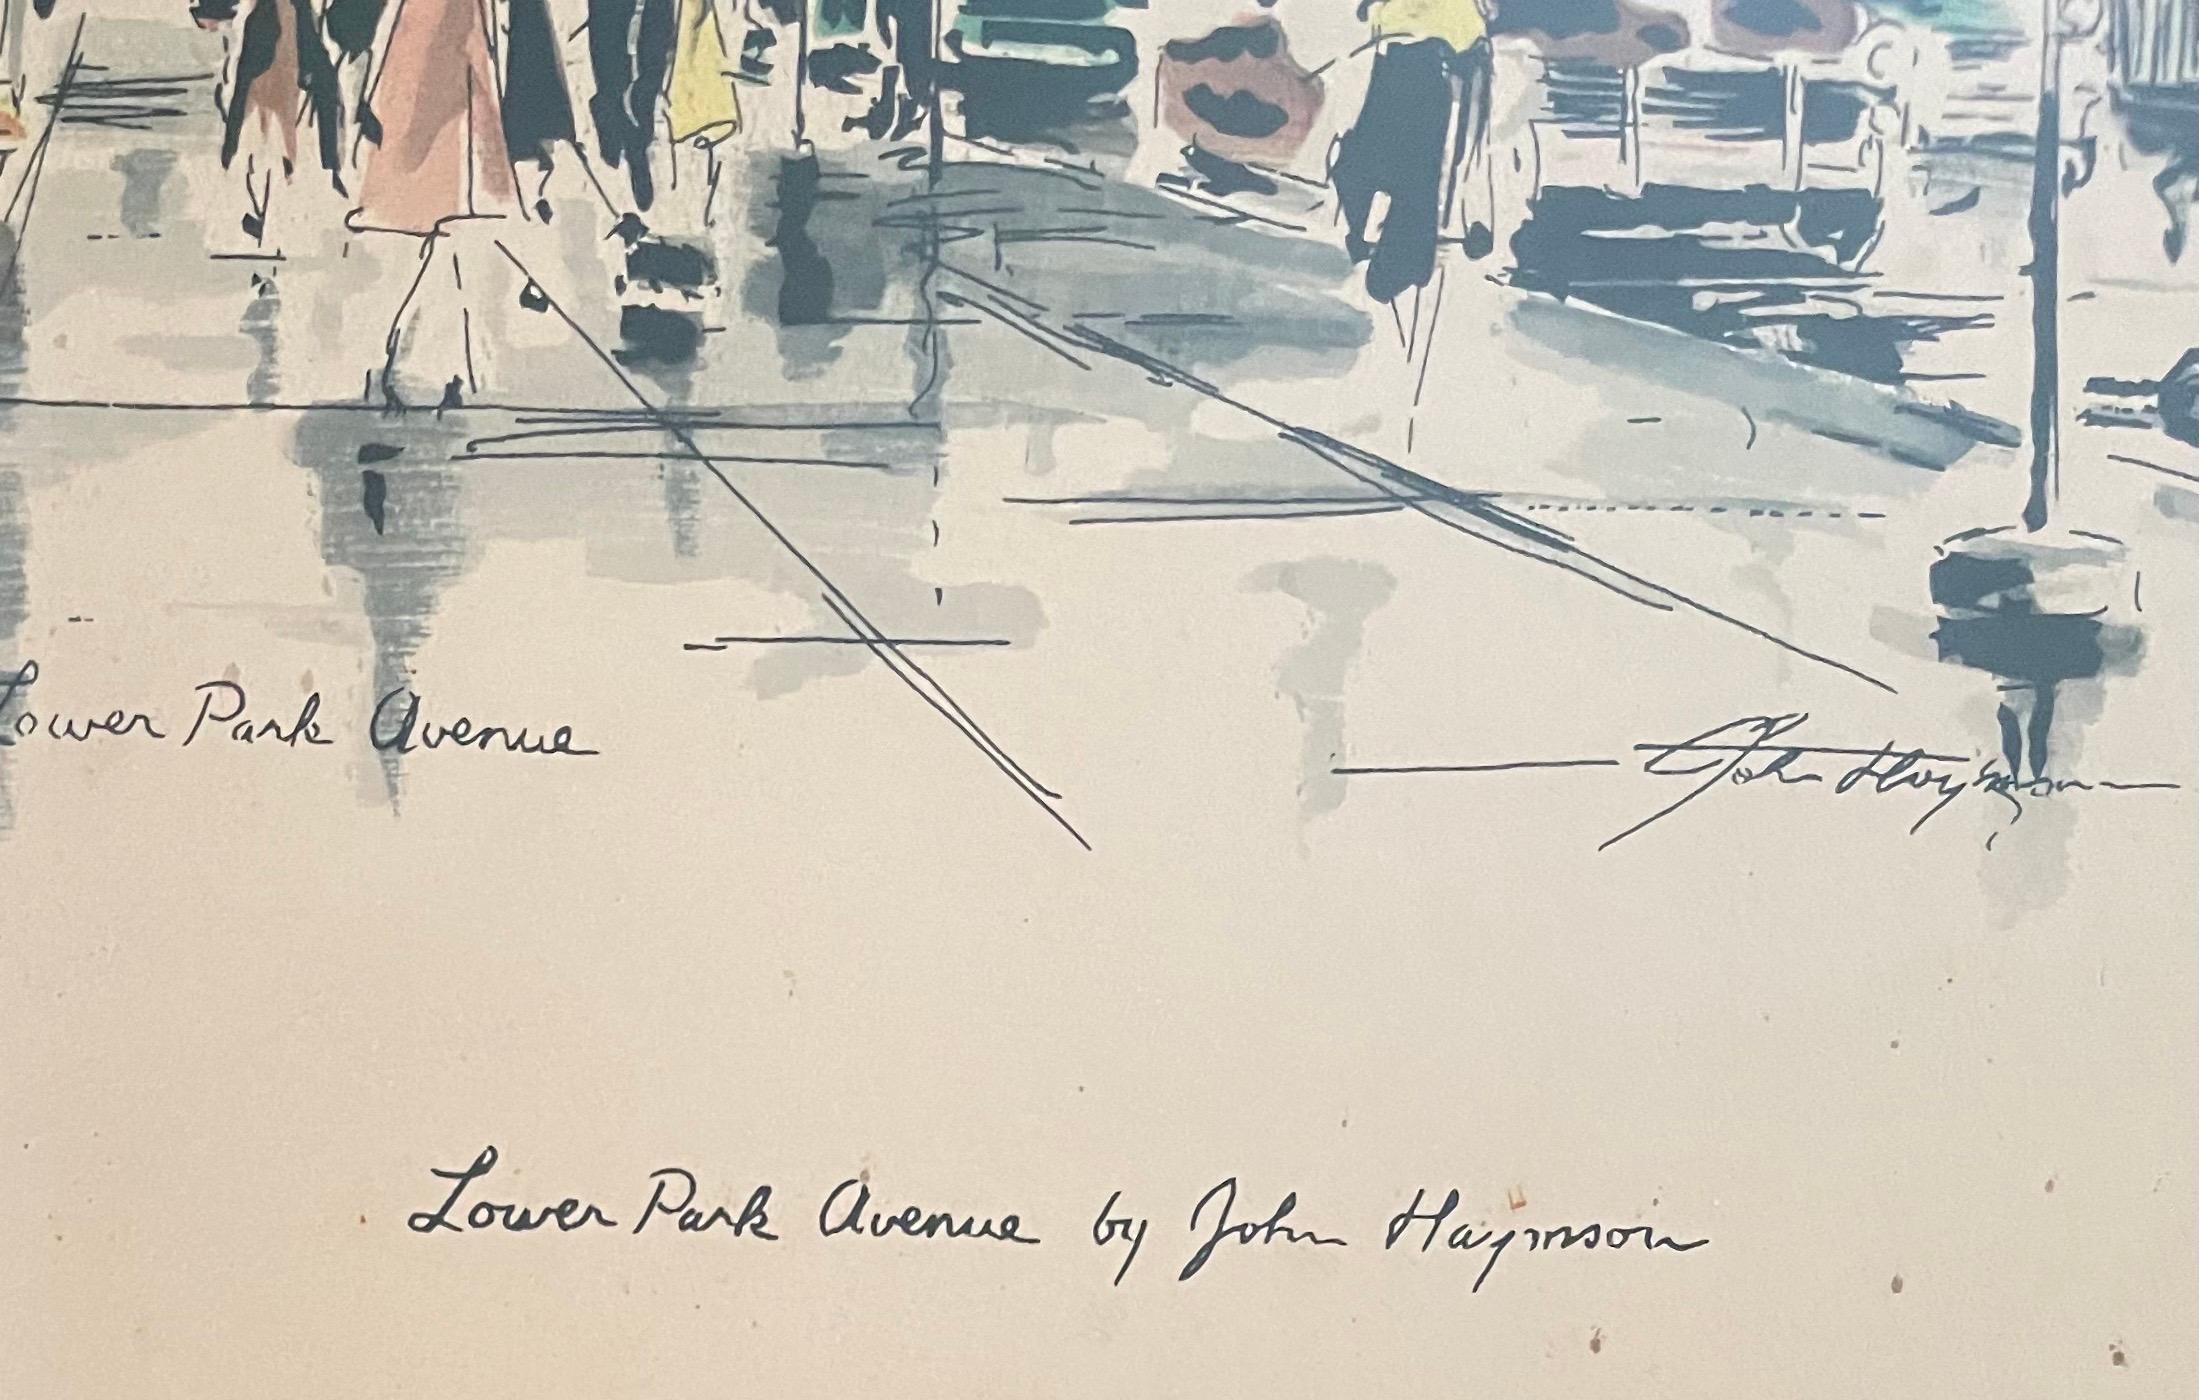 Lower Park Avenue
John Haymson
Lower Park Avenue by John Haymson